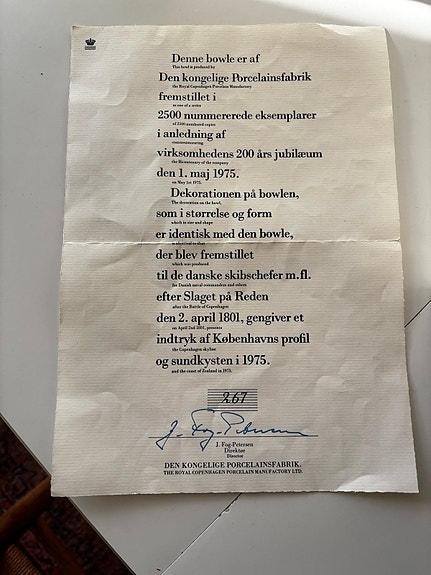 Denne bowle er af
This bowl is produced by
Den kongelige Porcelainsfabrik
the Royal Copenhagen Porcelain Manufactory
fremstillet i
as one of a series
2500 nummererede eksemplarer
of 2500 numbered copies
i anledning af
commemorating
virksomhedens 200 års jubilæum
the Bicentenary of the company
den 1. maj 1975.
on May 1st 1975.
Dekorationen på bowlen,
The decoration on the bowl,
som i størrelse og form
which in size and shape
er identisk med den bowle,
is identical to that
der blev fremstillet
which was produced
til de danske skibschefer m.fl.
for Danish naval commanders and others
efter Slaget på Reden
after the Battle of Copenhagen
den 2. april 1801, gengiver et
on April 2nd 1801, presents
indtryk af Københavns profil
the Copenhagen skyline
og sundkysten i 1975.
and the coast of Zealand in 1975.
267
J. Fog-Petersen
J. Fog-Petersen
Direktør
Director
DEN KONGELIGE PORCELAINSFABRIK.
THE ROYAL COPENHAGEN PORCELAIN MANUFACTORY LTD.